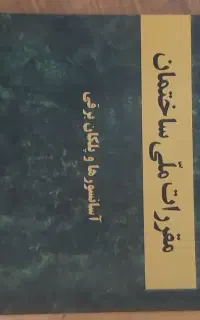 مقررات ملّی ساختمان
آسانسورها و پلکان برقی